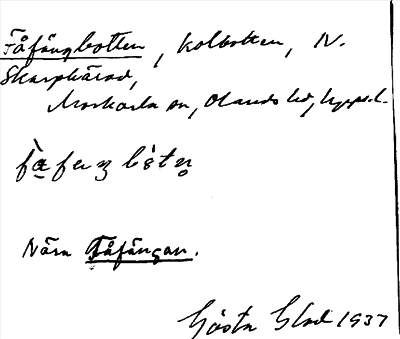 Fåfängbotten, kolbotten, N.
Skarphärad,
Morkarla sn, Olands hd, Uppsl.
Nära Fåfängan.
Gösta Blad 1937